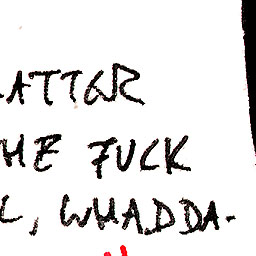 ATTER
HE FUCK
L, WHADDA-